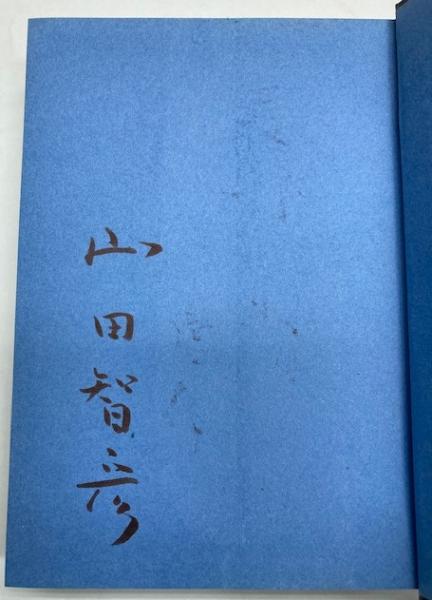 山田智彦